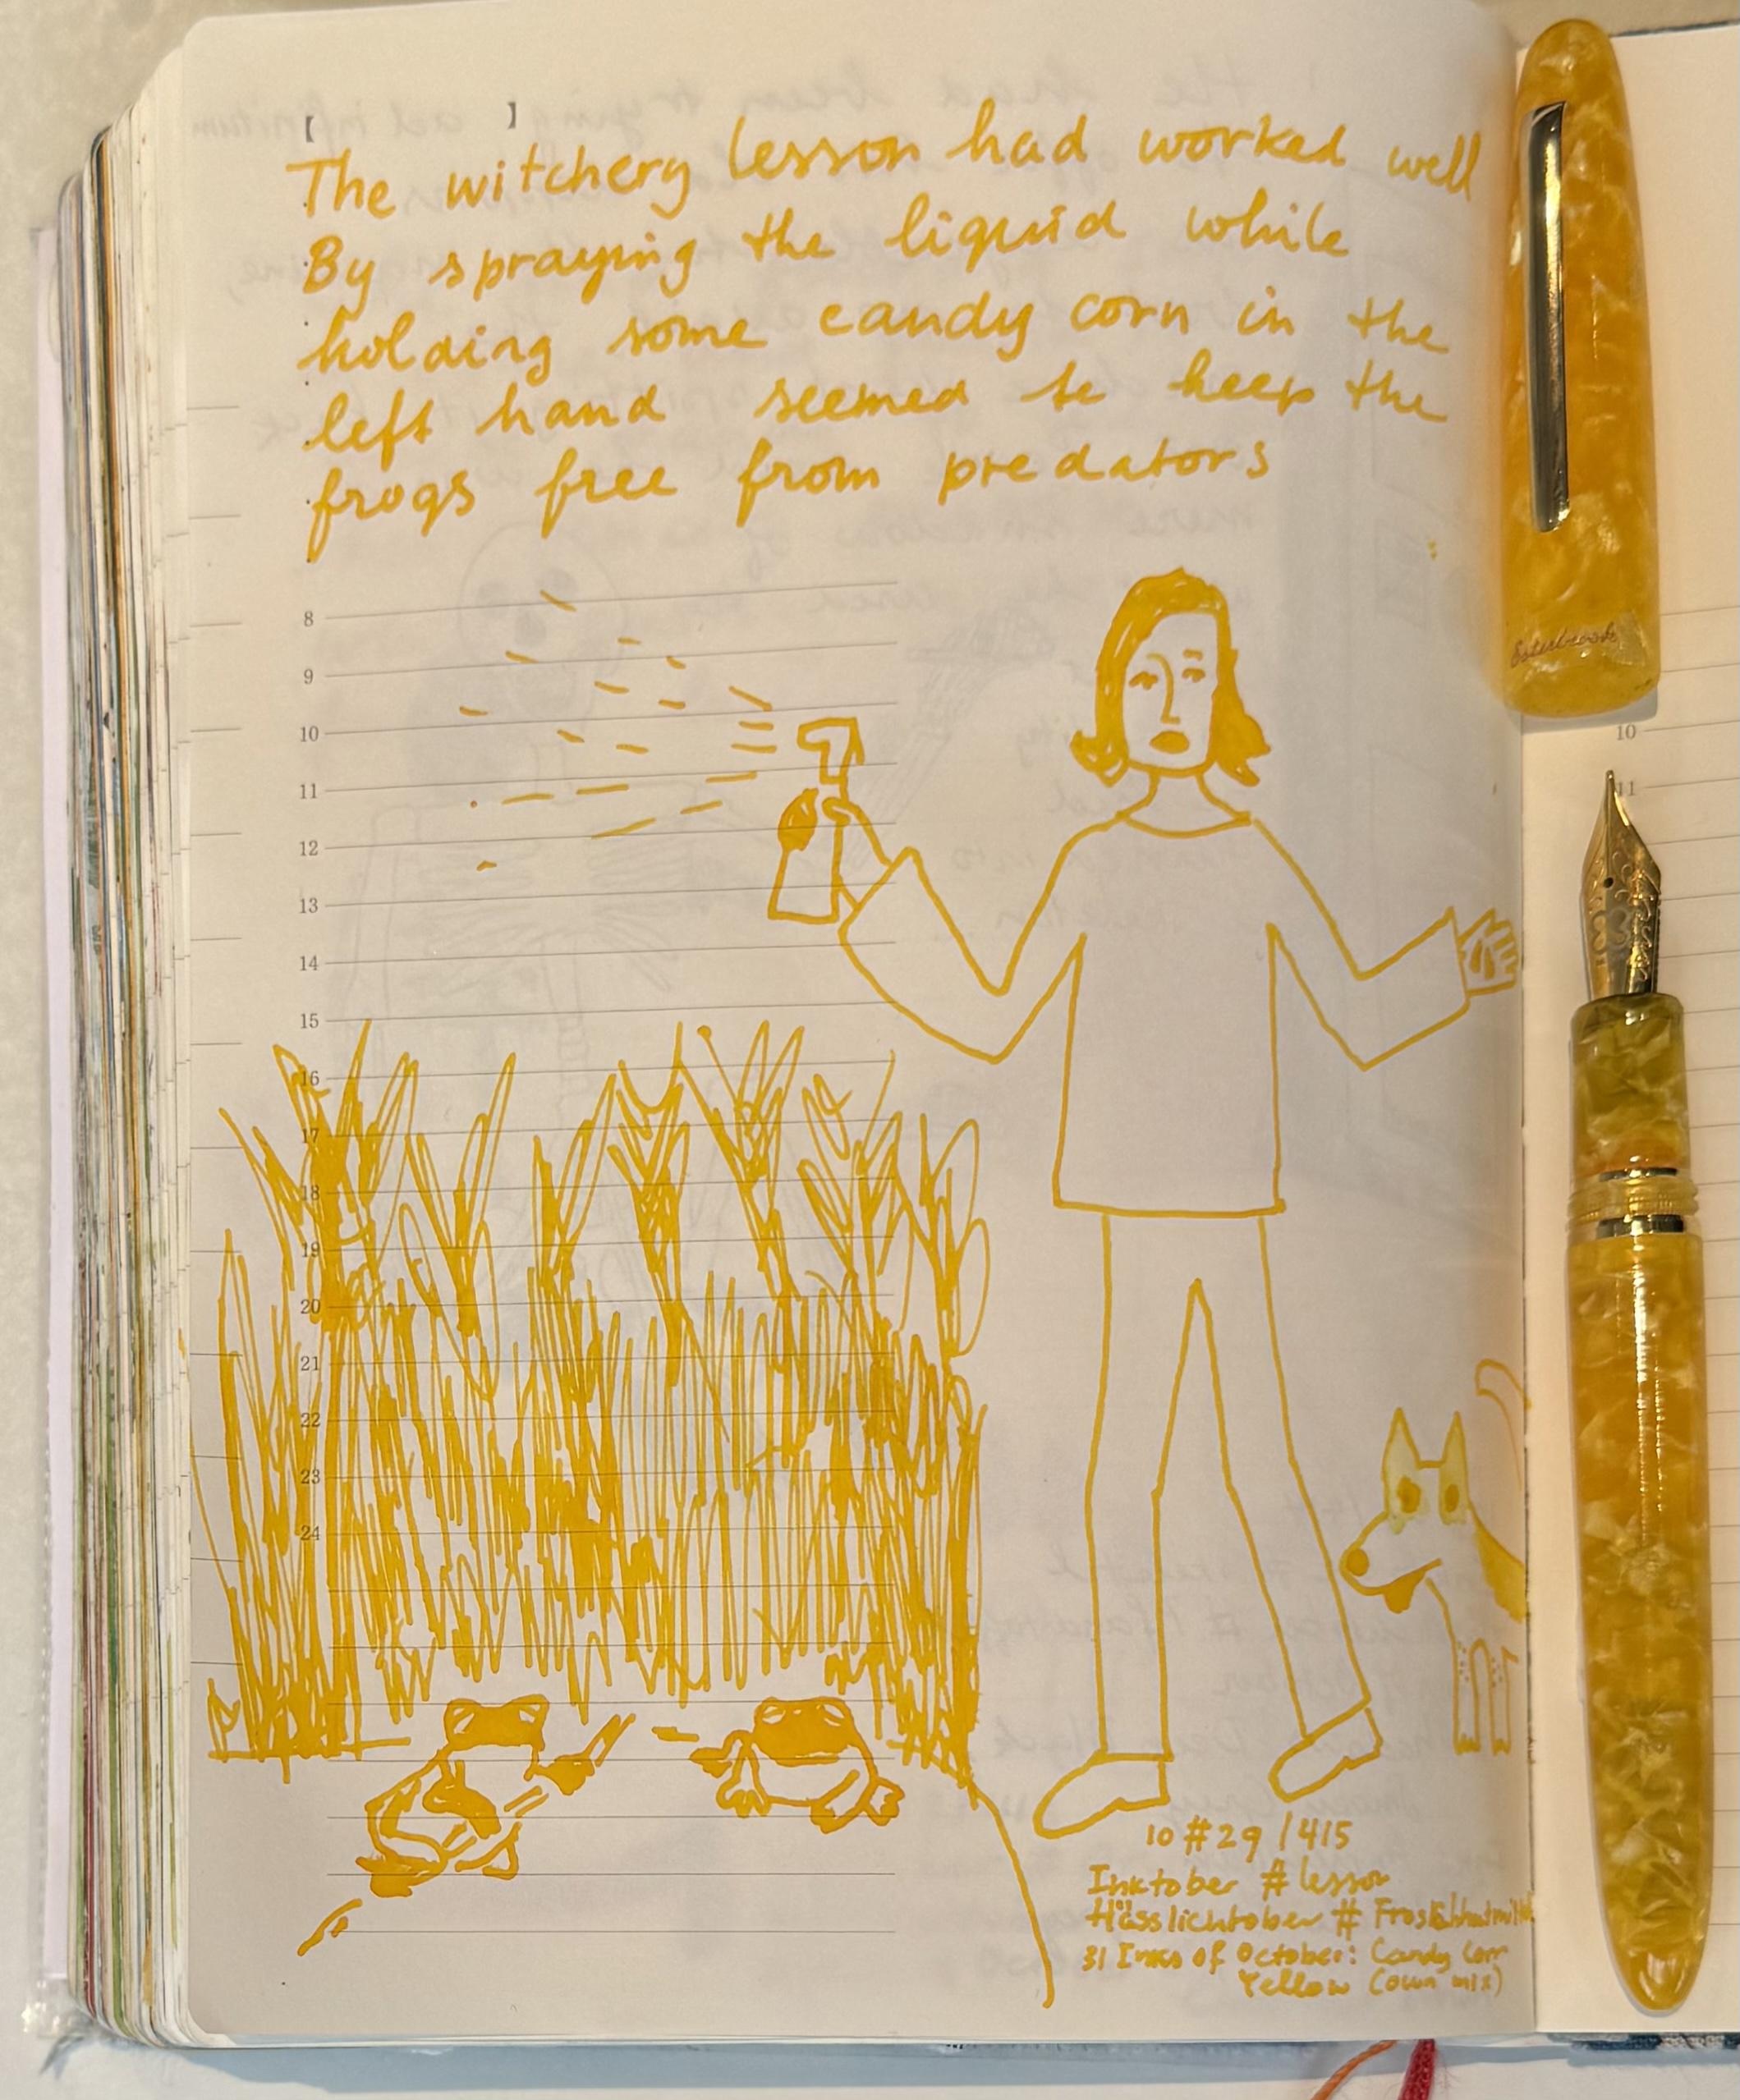 The witchery lesson had worked well
By spraying the liquid while
holding some candy corn in the
left hand seemed to keep the
frogs free from predators
8
9
10
11
12
13
14
15
16
17
18
19
20
21
22
23
24
10 #29 / 415
Inktober # lesson
Hässlichtober #
31 Inks of October: Candy Corn
Yellow (own mix)
Esterbrook
10
11